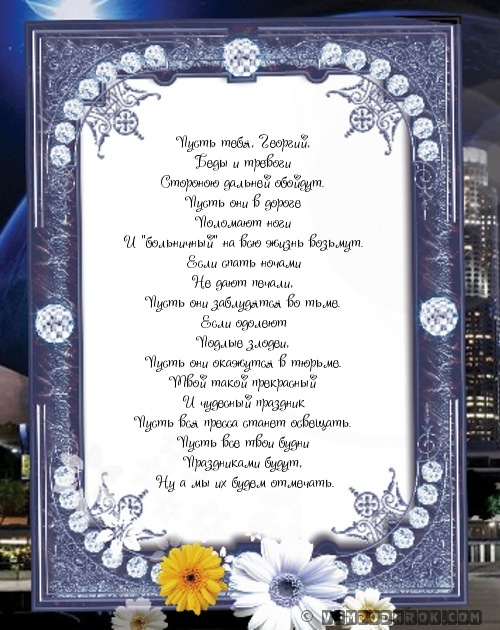 Пусть тебя, Георгий,
Беды и тревоги
Стороною дальней обойдут.
Пусть они в дороге
Поломают ноги
И "больничный" на всю жизнь возьмут.
Если спать ночами
Не дают печали,
Пусть они заблудятся во тьме.
Если одолеют
Подлые злодеи,
Пусть они окажутся в тюрьме.
Твой такой прекрасный
И чудесный праздник
Пусть вся пресса станет освещать.
Пусть все твои будни
Праздниками будут,
Ну а мы их будем отмечать.